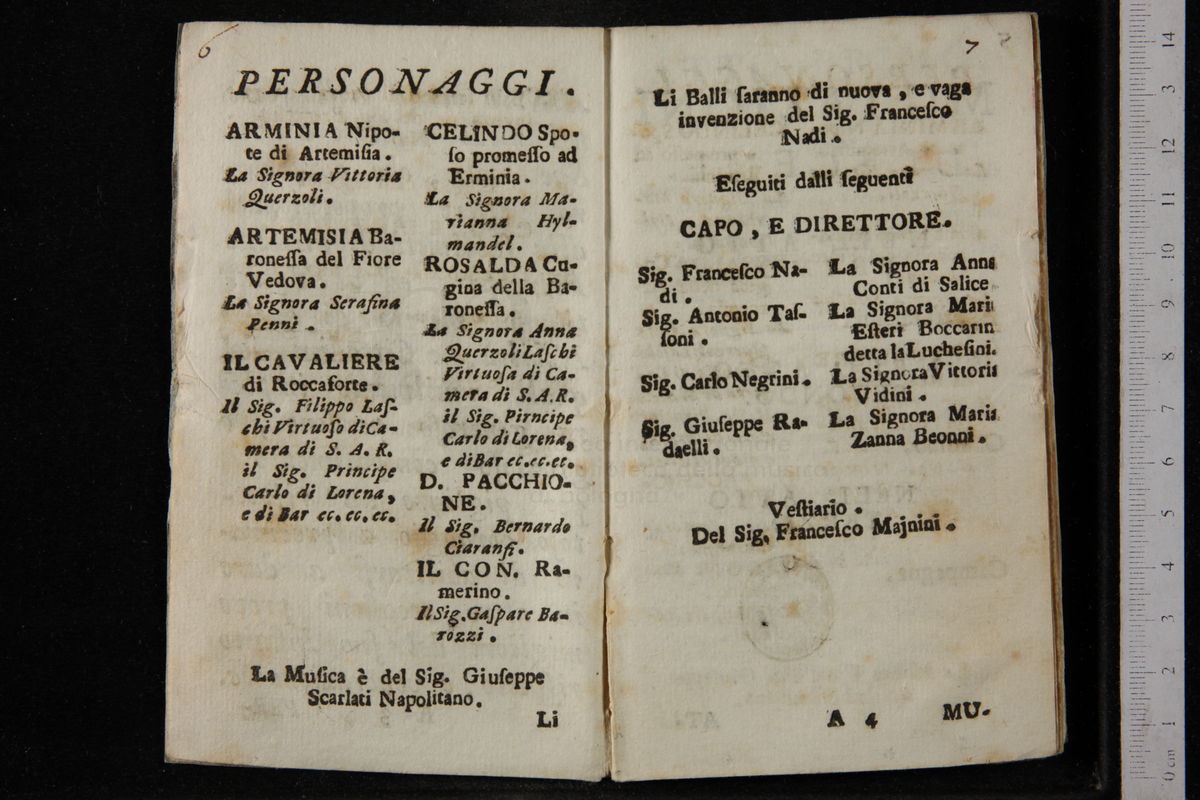 6
PERSONAGGI.
ARMINIA Nipo-
te di Artemiſia.
La Signora Vittoria
Querzoli.
ARTEMISIA Ba-
roneſſa del Fiore
Vedova.
La Signora Serafina
Penni.
IL CAVALIERE
di Roccaforte.
Il Sig. Filippo Laſ-
chi Virtuoſo di Ca-
mera di S. A. R.
il Sig. Principe
Carlo di Lorena,
e di Bar ec. ec. ec.
CELINDO Spo-
ſo promeſſo ad
Erminia.
La Signora Ma-
rianna Hyl-
mandel.
ROSALDA Cu-
gina della Ba-
roneſſa.
La Signora Anna
Querzoli Laſchi
Virtuoſa di Ca-
mera di S. A. R.
il Sig. Pirncipe
Carlo di Lorena,
e di Bar ec. ec. ec.
D. PACCHIO-
NE.
Il Sig. Bernardo
Ciaranfi.
IL CON. Ra-
merino.
Il Sig. Gaſpare Ba-
rozzi.
La Muſica è del Sig. Giuſeppe
Scarlati Napolitano.
Li
7
Li Balli ſaranno di nuova, e vaga
invenzione del Sig. Franceſco
Nadi.
Eſeguiti dalli ſeguenti
CAPO, E DIRETTORE.
Sig. Franceſco Na-
di.
Sig. Antonio Taſ-
ſoni.
Sig. Carlo Negrini.
Sig. Giuſeppe Ra-
daelli.
La Signora Anna
Conti di Salice
La Signora Mari
Eſteri Boccarin
detta la Lucheſini.
La Signora Vittoria
Vidini.
La Signora Maria
Zanna Beonni.
Veſtiario.
Del Sig. Franceſco Majnini.
A 4
MU-
0 cm 1 2 3 4 5 6 7 8 9 10 11 12 3 14